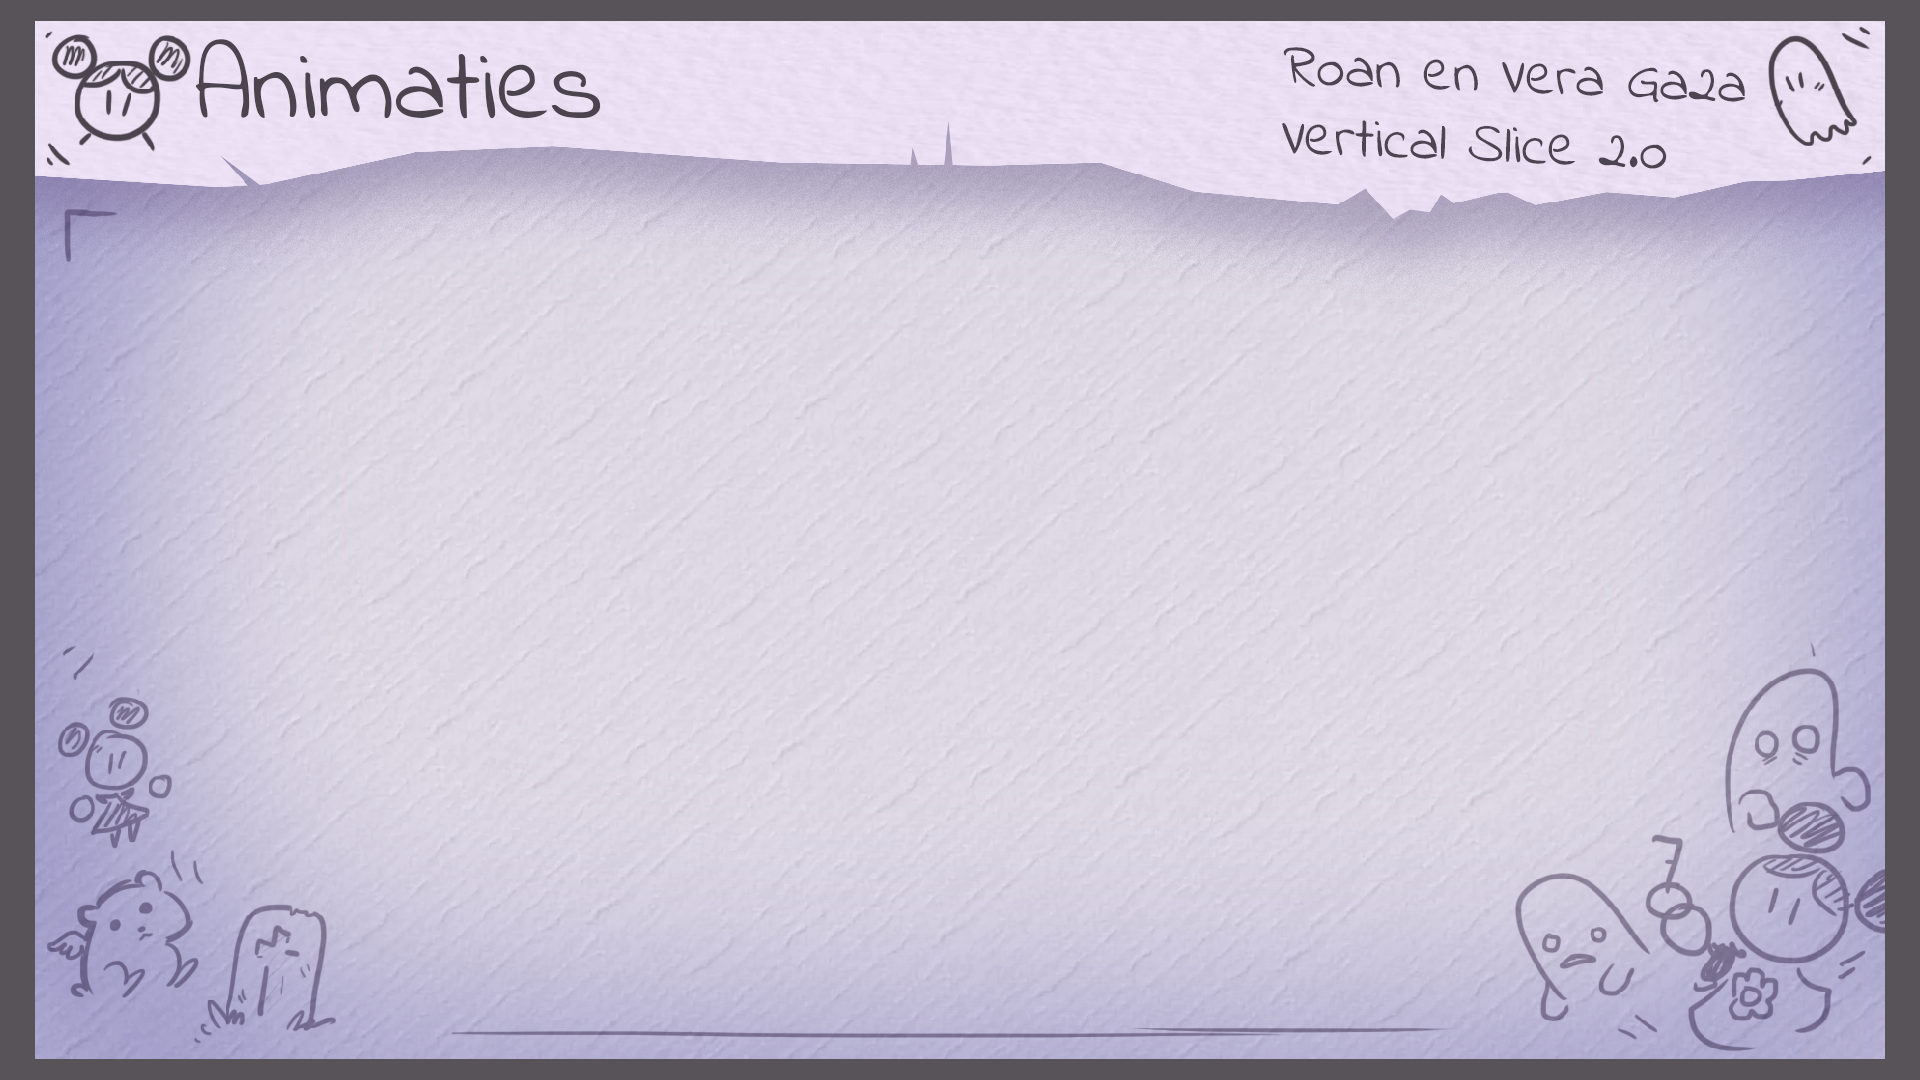 Animaties
Roan en Vera Ga2a
Vertical Slice 2.0